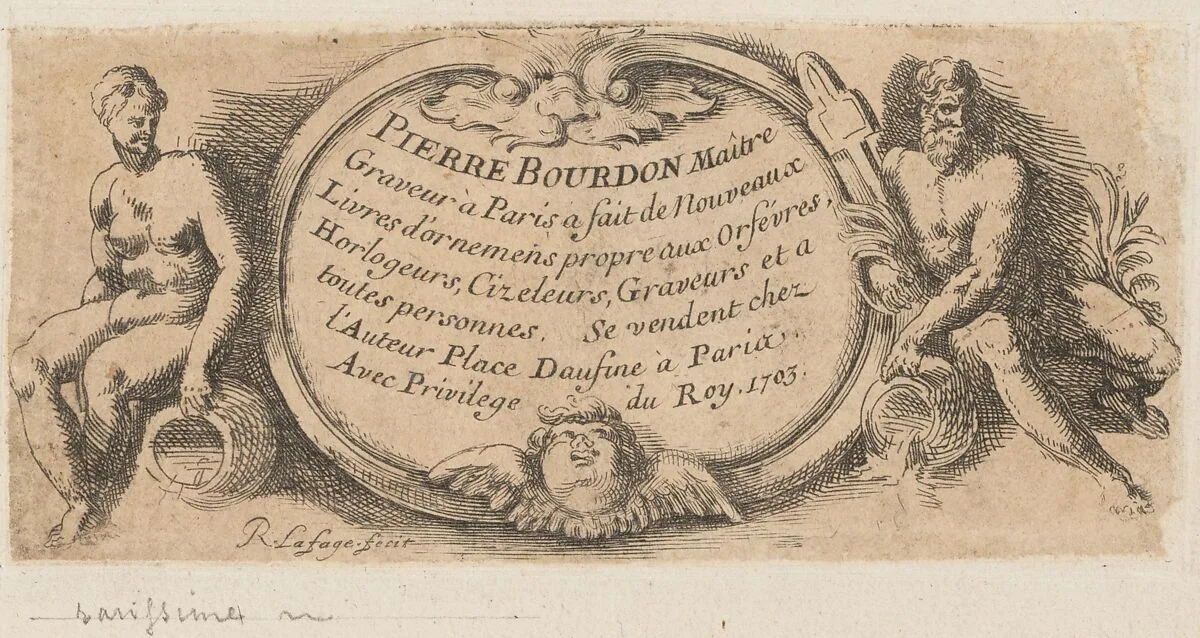 PIERRE BOURDON Maître
Graveur à Paris à fait de Nouveaux
Livres d'ornemens propre aux Orfévres,
Horlogeurs, Cizeleurs, Graveurs et a
toutes personnes. Se vendent chez
l'Auteur Place Daufine à Paris.
Avec Privilege du Roy. 1703.
R. Lafage. fecit
rarissime